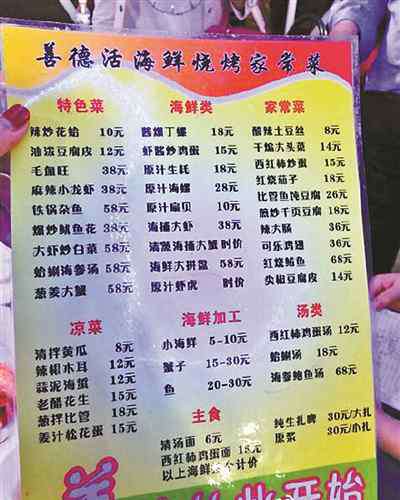 善德活海鲜烧烤家常菜
特色菜
辣炒花蛤 10元
油泼豆腐皮 12元
毛血旺 38元
麻辣小龙虾 38元
铁锅杂鱼 58元
爆炒鱿鱼花 38元
大虾炒白菜 58元
蛤蜊海参汤 58元
葱姜大蟹 58元
海鲜类
酱爆丁螺 18元
虾酱炒鸡蛋 15元
原汁生蚝 18元
原汁海螺 28元
原汁扇贝 10元
海捕大虾 38元
清蒸海捕大蟹 时价
海鲜大拼盘 58元
原汁虾虎 时价
家常菜
酸辣土豆丝 8元
干煸大头菜 14元
西红柿炒蛋 15元
红烧茄子 18元
比管鱼炖豆腐 26元
蒜炒千页豆腐 18元
辣大肠 36元
可乐鸡翅 36元
红烧鲅鱼 68元
尖椒豆腐皮 14元
凉菜
清拌黄瓜 8元
辣椒木耳 12元
蒜泥海蜇 12元
老醋花生 15元
葱拌比管 18元
姜汁松花蛋 15元
海鲜加工
小海鲜 5-10元
蟹子 15-30元
鱼 20-30元
汤类
西红柿鸡蛋汤 12元
蛤蜊汤 18元
海参鲍鱼汤 68元
主食
清汤面 6元
西红柿鸡蛋面 15元
以上海鲜 个计价
纯生扎啤 30元/大扎
原浆 30元/小扎
开始